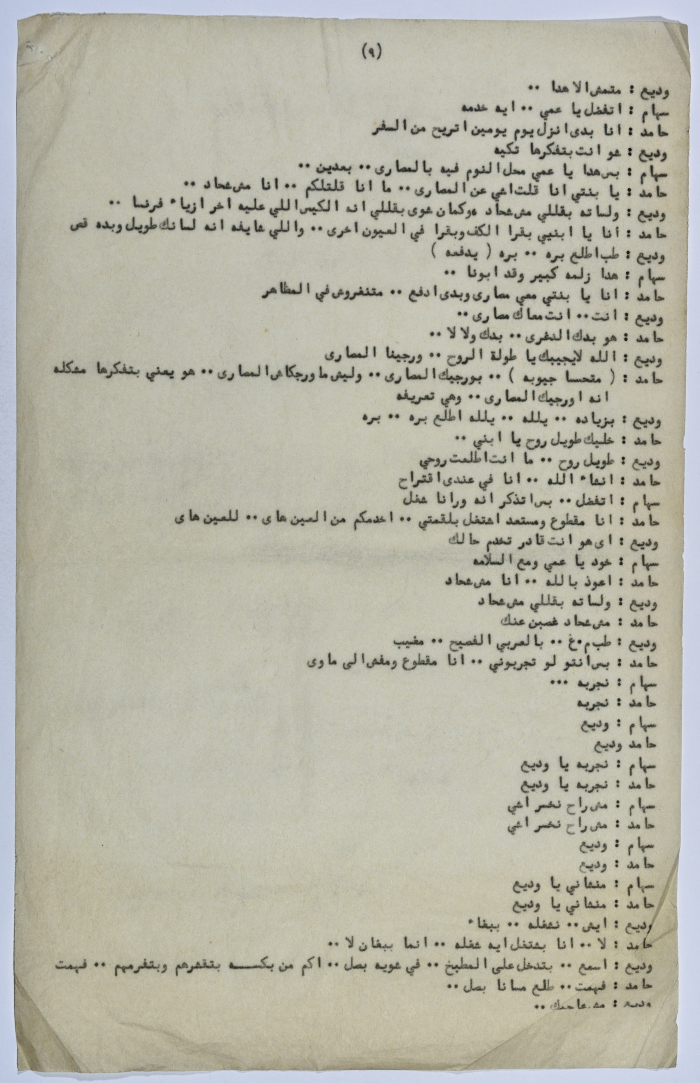 (٩)
وديع : متمش الا هدا ٠٠
سهام : اتفضل يا عمي ٠٠ ايه خدمه
حامد : انا بدى انزل يوم يومين اتريح من السفر
وديع : هو انت بتفكرها تكيه
سهام : بس هدا يا عمي محل النوم فيه بالمصارى ٠٠ بعدين ٠٠
حامد : يا بنتي انا قلت اشي عن المصارى ٠٠ ما انا قلتلكم ٠٠ انا مش شحاد ٠٠
وديع : ولساته بقللي مش شحاد وكمان شوى بقللي انه الكيس اللي عليه اخر ازياء فرنسا ٠٠
حامد : انا يا ابنيي بقرا الكف وبقرا في العيون اخرى ٠٠ واللي شايفه انه لسانك طويل وبده قص
وديع : طب اطلع بره ٠٠ بره ( يدفعه )
سهام : هدا زلمه كبير وقد ابونا ٠٠
حامد : انا يا بنتي معي مصارى وبدى ادفع ٠٠ متنغروش في المظاهر
وديع : انت ٠٠ انت معاك مصارى ٠٠
حامد : هو بدك الدغرى ٠٠ بدك ولا لا ٠٠
وديع : الله لايجيبك يا طولة الروح ٠٠ ورجينا المصارى
حامد : ( متحسا جيوبه ) ٠٠ بورجيك المصارى ٠٠ وليش ما ورجكاش المصارى ٠٠ هو يعني بتفكرها مشكله
انه اورجيك المصارى ٠٠ وهي تعريفه
وديع : بزياده ٠٠ يلله ٠٠ يلله اطلع بره ٠٠ بره
حامد : خليك طويل روح يا ابني ٠٠
وديع : طويل روح ٠٠ ما انت اطلعت روحي
حامد : انشاء الله ٠٠ انا في عندى اقتراح
سهام : اتفضل ٠٠ بس اتذكر انه ورانا شغل
حامد : انا مقطوع ومستعد اشتغل بلقمتي ٠٠ اخدمكم من العين هاى ٠٠ للعين هاى
وديع : اى هو انت قادر تخدم حالك
سهام : خود يا عمي ومع السلامه
حامد : اعوذ بالله ٠٠ انا مش شحاد
وديع : ولساته بقللي مش شحاد
حامد : مش شحاد غصبن عنك
وديع : طب م٠غ ٠٠ بالعربي الفصيح ٠٠ مفيب
حامد : بس انتو لو تجربوني ٠٠ انا مقطوع ومفش الى ماوى
سهام : نجربه ٠٠٠
حامد : نجربه
سهام : وديع
حامد وديع
سهام : نجربه يا وديع
حامد : نجربه يا وديع
سهام : مش راح نخسر اشي
حامد : مش راح نخسر اشي
سهام : وديع
حامد : وديع
سهام : منشاني يا وديع
حامد : منشاني يا وديع
وديع : ايش ٠٠ نشغله ٠٠ ببغاء
حامد : لا ٠٠ انا بشتغل ايه شغله ٠٠ انما ببغان لا ٠٠
وديع : اسمع ٠٠ بتدخل على المطبخ ٠٠ في شويه بصل ٠٠ اكم من بكسه بتقشرهم وبتفرمهم ٠٠ فهمت
حامد : فهمت ٠٠ طلع مسانا بصل ٠٠
وديع : مش عاجبك ٠٠